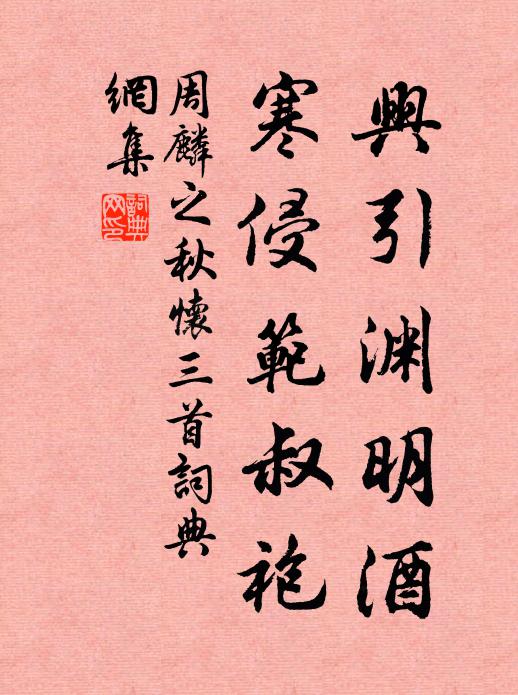 興引渊明酒
寒侵範叔袍
周麟之秋懷三首詞典
網集
詞典網印